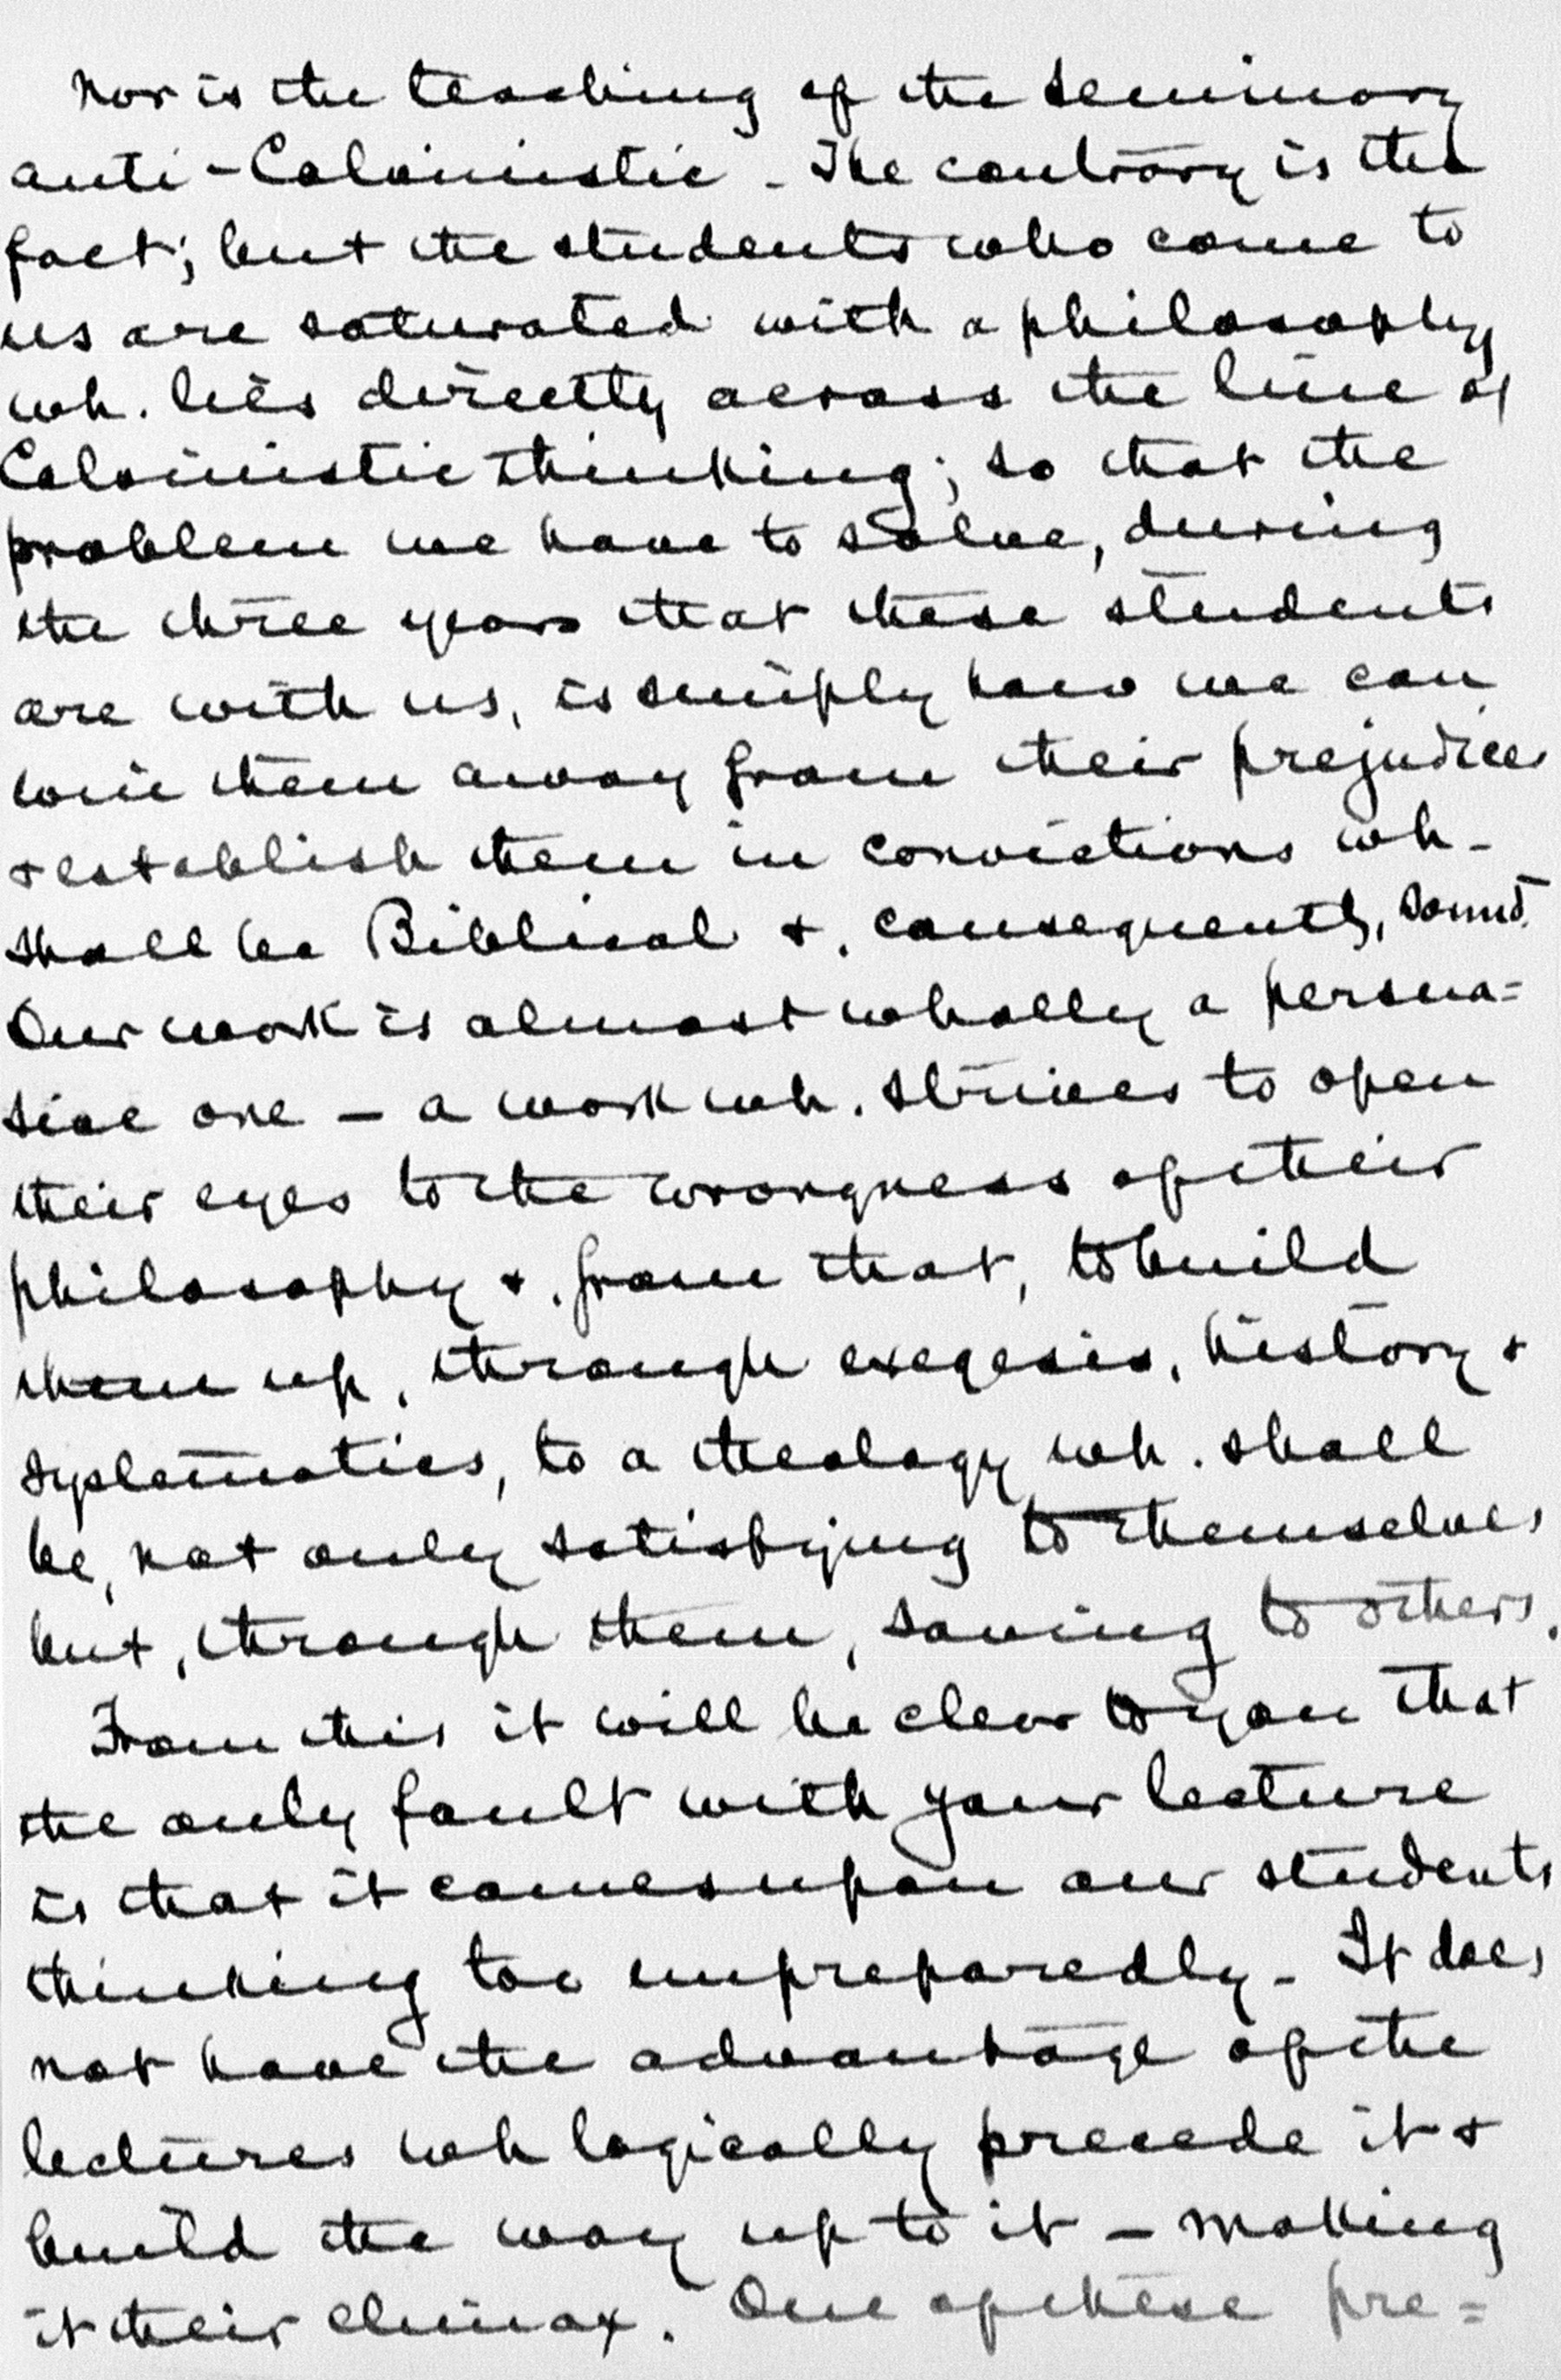 Nor is the teaching of the Seminary
anti-Calvinistic. The contrary is the
fact; but the students who come to
us are saturated with a philosophy
wh. lies directly across the line of
Calvinistic thinking; so that the
problem we have to solve, during
the three years that these students
are with us, is simply how we can
win them away from their prejudices
& establish them in convictions wh.
shall be Biblical &, consequently, sound.
Our work is almost wholly a persua=
sive one – a work wh. strives to open
their eyes to the wrongness of their
philosophy &, from that, to build
them up, through exegesis, history &
systematics, to a theology wh. shall
be, not only satisfying to themselves
but, through them, saving to others.
From this it will be clear to you that
the only fault with your lecture
is that it comes upon our students
thinking too unpreparedly. It does
not have the advantage of the
lectures wh logically precede it &
build the way up to it – making
it their climax. One of these pre=